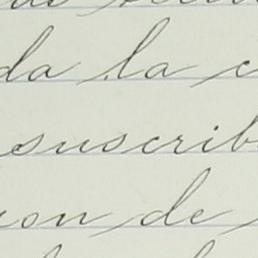 da la c
suscrib
ion de